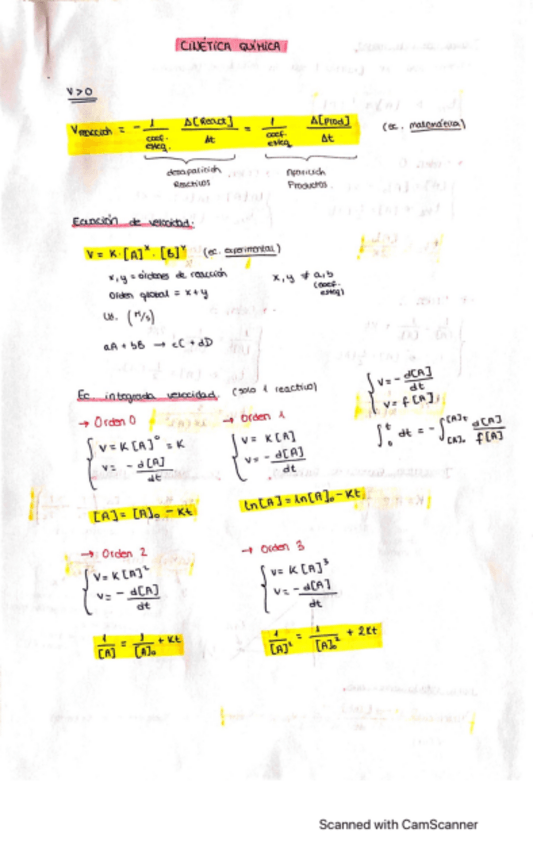 CINÉTICA QUÍMICA
V>0
Vreacción = - 1/coef. esteq. Δ[React]/Δt = 1/coef. esteq. Δ[Prod]/Δt (ec. matemática)
desaparición Reactivos
Aparición Productos.
Ecuación de velocidad:
V = K·[A]ˣ·[B]ʸ (ec. experimental)
x,y = órdenes de reacción x,y ≠ a,b (coef. esteq)
Orden global = x+y
Ud. (M/s)
aA + bB → cC + dD
Ec. integrada velocidad. (solo 1 reactivo)
V = - d[A]/dt
V = f[A]
∫₀ᵗ dt = - ∫[A]₀^[A]t d[A]/f[A]
→ Orden 0
V = K[A]⁰ = K
V = - d[A]/dt
[A] = [A]₀ - Kt
→ Orden 1
V = K[A]
V = - d[A]/dt
ln[A] = ln[A]₀ - Kt
→ Orden 2
V = K[A]²
V = - d[A]/dt
1/[A] = 1/[A]₀ + Kt
→ Orden 3
V = K[A]³
V = - d[A]/dt
1/[A]² = 1/[A]₀² + 2Kt
Scanned with CamScanner